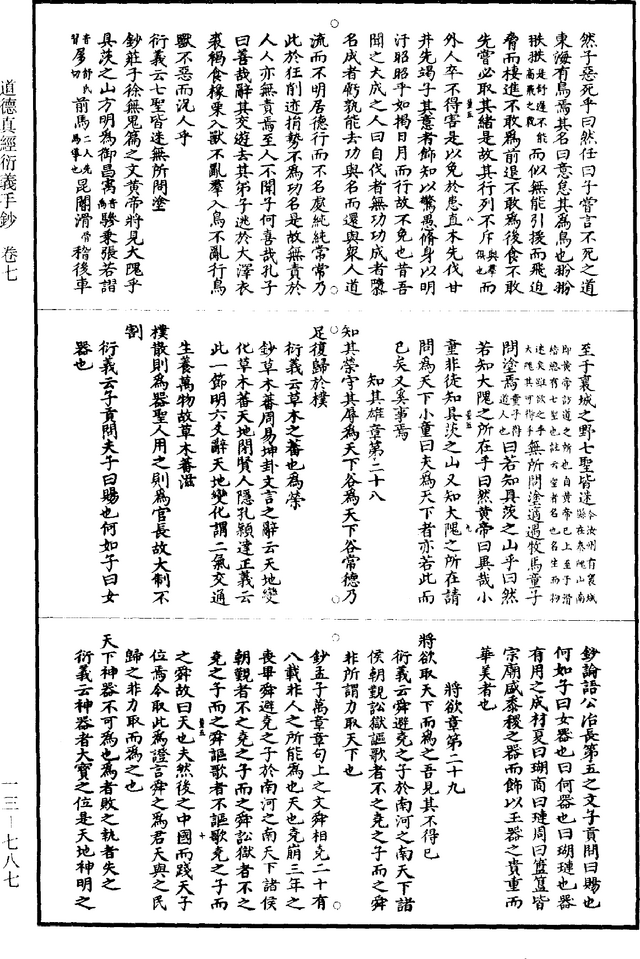 然子惡死乎曰然任曰子嘗言不死之道
東海有鳥焉其名曰意怠其為鳥也翂翂
翐翐是舒遲不能高飛之貌而似無能引援而飛迫
脅而棲進不敢為前退不敢為後食不敢
先嘗必取其緒是故其行列不斥與羣俱也而
外人卒不得害是以免於患直木先伐甘
井先竭子其意者飾知以驚愚脩身以明
汙昭昭乎如揭日月而行故不免也昔吾
聞之大成之人曰自伐者無功功成者隳
名成者虧孰能去功與名而還與衆人道
流而不明居德行而不名處純純常常乃
比於狂削迹捐勢不為功名是故無責於
人人亦無責焉至人不聞子何喜哉孔子
曰善哉辭其交遊去其弟子逃於大澤衣
裘褐食橡栗入獸不亂羣入鳥不亂行鳥
獸不惡而況人乎
衍義云七聖皆迷無所問塗
鈔莊子徐無鬼篇之文黃帝將見大隗乎
具茨之山方明為御昌寓驂乘張若謵
前馬二人先馬導也昆閽滑稽後車
至于襄城之野七聖皆迷
無所問塗適遇牧馬童子
問塗焉曰若知具茨之山乎曰然
若知大隗之所在乎曰然黃帝曰異哉小
童非徒知具茨之山又知大隗之所在請
問為天下小童曰夫為天下者亦若此而
已矣又奚事焉
知其雄章第二十八
知其榮守其辱為天下谷為天下谷常德乃
足復歸於樸
衍義云草木之蕃也為榮
鈔草木蕃周易坤卦文言之辭云天地變
化草木蕃天地閉賢人隱孔穎達正義云
此一節明六爻辭天地變化謂二氣交通
生養萬物故草木蕃滋
樸散則為器聖人用之則為官長故大制不
割
衍義云子貢問夫子曰賜也何如子曰女
器也
鈔論語公冶長第五之文子貢問曰賜也
何如子曰女器也曰何器也曰瑚璉也器
有用之成材夏曰瑚商曰璉周曰簠簋皆
宗廟盛黍稷之器而飾以玉器之貴重而
華美者也
將欲章第二十九
將欲取天下而為之吾見其不得已
衍義云舜避堯之子於南河之南天下諸
侯朝覲訟獄謳歌者不之堯之子而之舜
非所謂力取天下也
鈔孟子萬章章句上之文舜相堯二十有
八載非人之所能為也天也堯崩三年之
喪畢舜避堯之子於南河之南天下諸侯
朝覲者不之堯之子而之舜訟獄者不之
堯之子而之舜謳歌者不謳歌堯之子而
之舜故曰天也夫然後之中國而踐天子
位焉今取此為證言舜之為君天與之民
歸之非力取而為之也
天下神器不可為也為者敗之執者失之
衍義云神器者大寶之位是天地神明之
道德真經衍義手鈔 卷七
一三—七八七